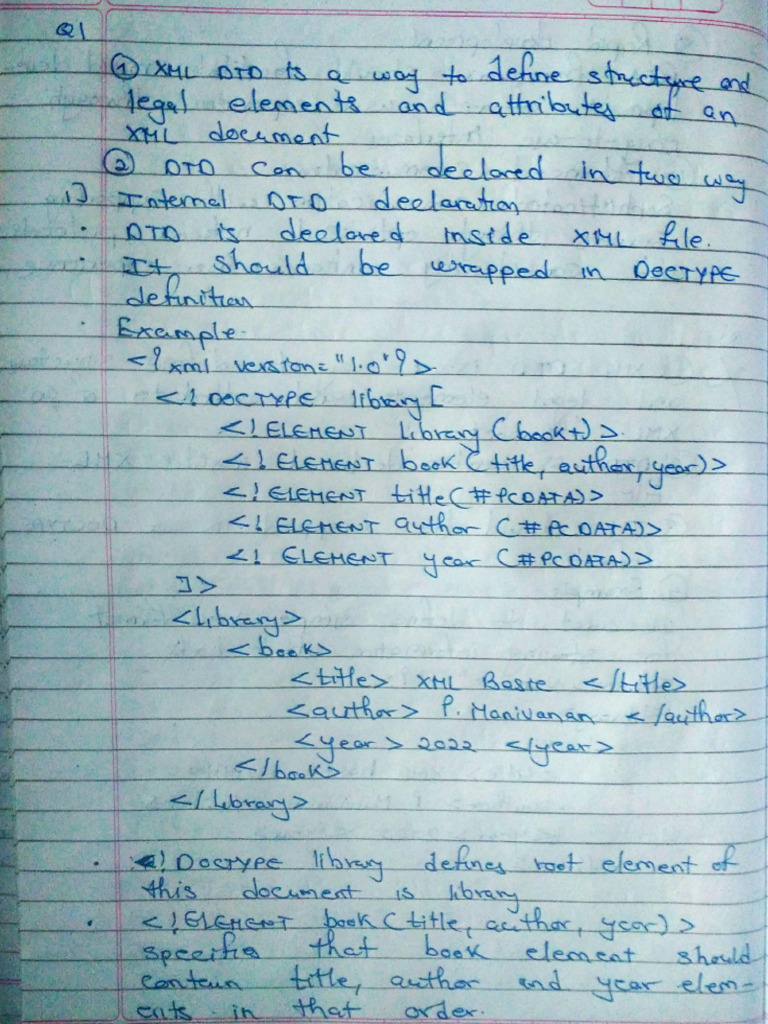 Q1
① XML DTD is a way to define structure and
legal elements and attributes of an
XML document
② DTD can be declared in two way
1] Internal DTD declaration
· DTD is declared inside XML file.
· It should be wrapped in DOCTYPE
definition
· Example.
<?xml version="1.0"?>
<!DOCTYPE library[
<!ELEMENT library(book+)>
<!ELEMENT book(title, author, year)>
<!ELEMENT title(#PCDATA)>
<!ELEMENT author (#PCDATA)>
<!ELEMENT year (#PCDATA)>
]>
<library>
<book>
<title> XML Basic </title>
<author> P. Manivanan </author>
<year> 2022 </year>
</book>
</library>
· <!DOCTYPE library defines root element of
this document is library
· <!ELEMENT book(title, author, year)>
specifies that book element should
contain title, author and year elem-
ents in that order.